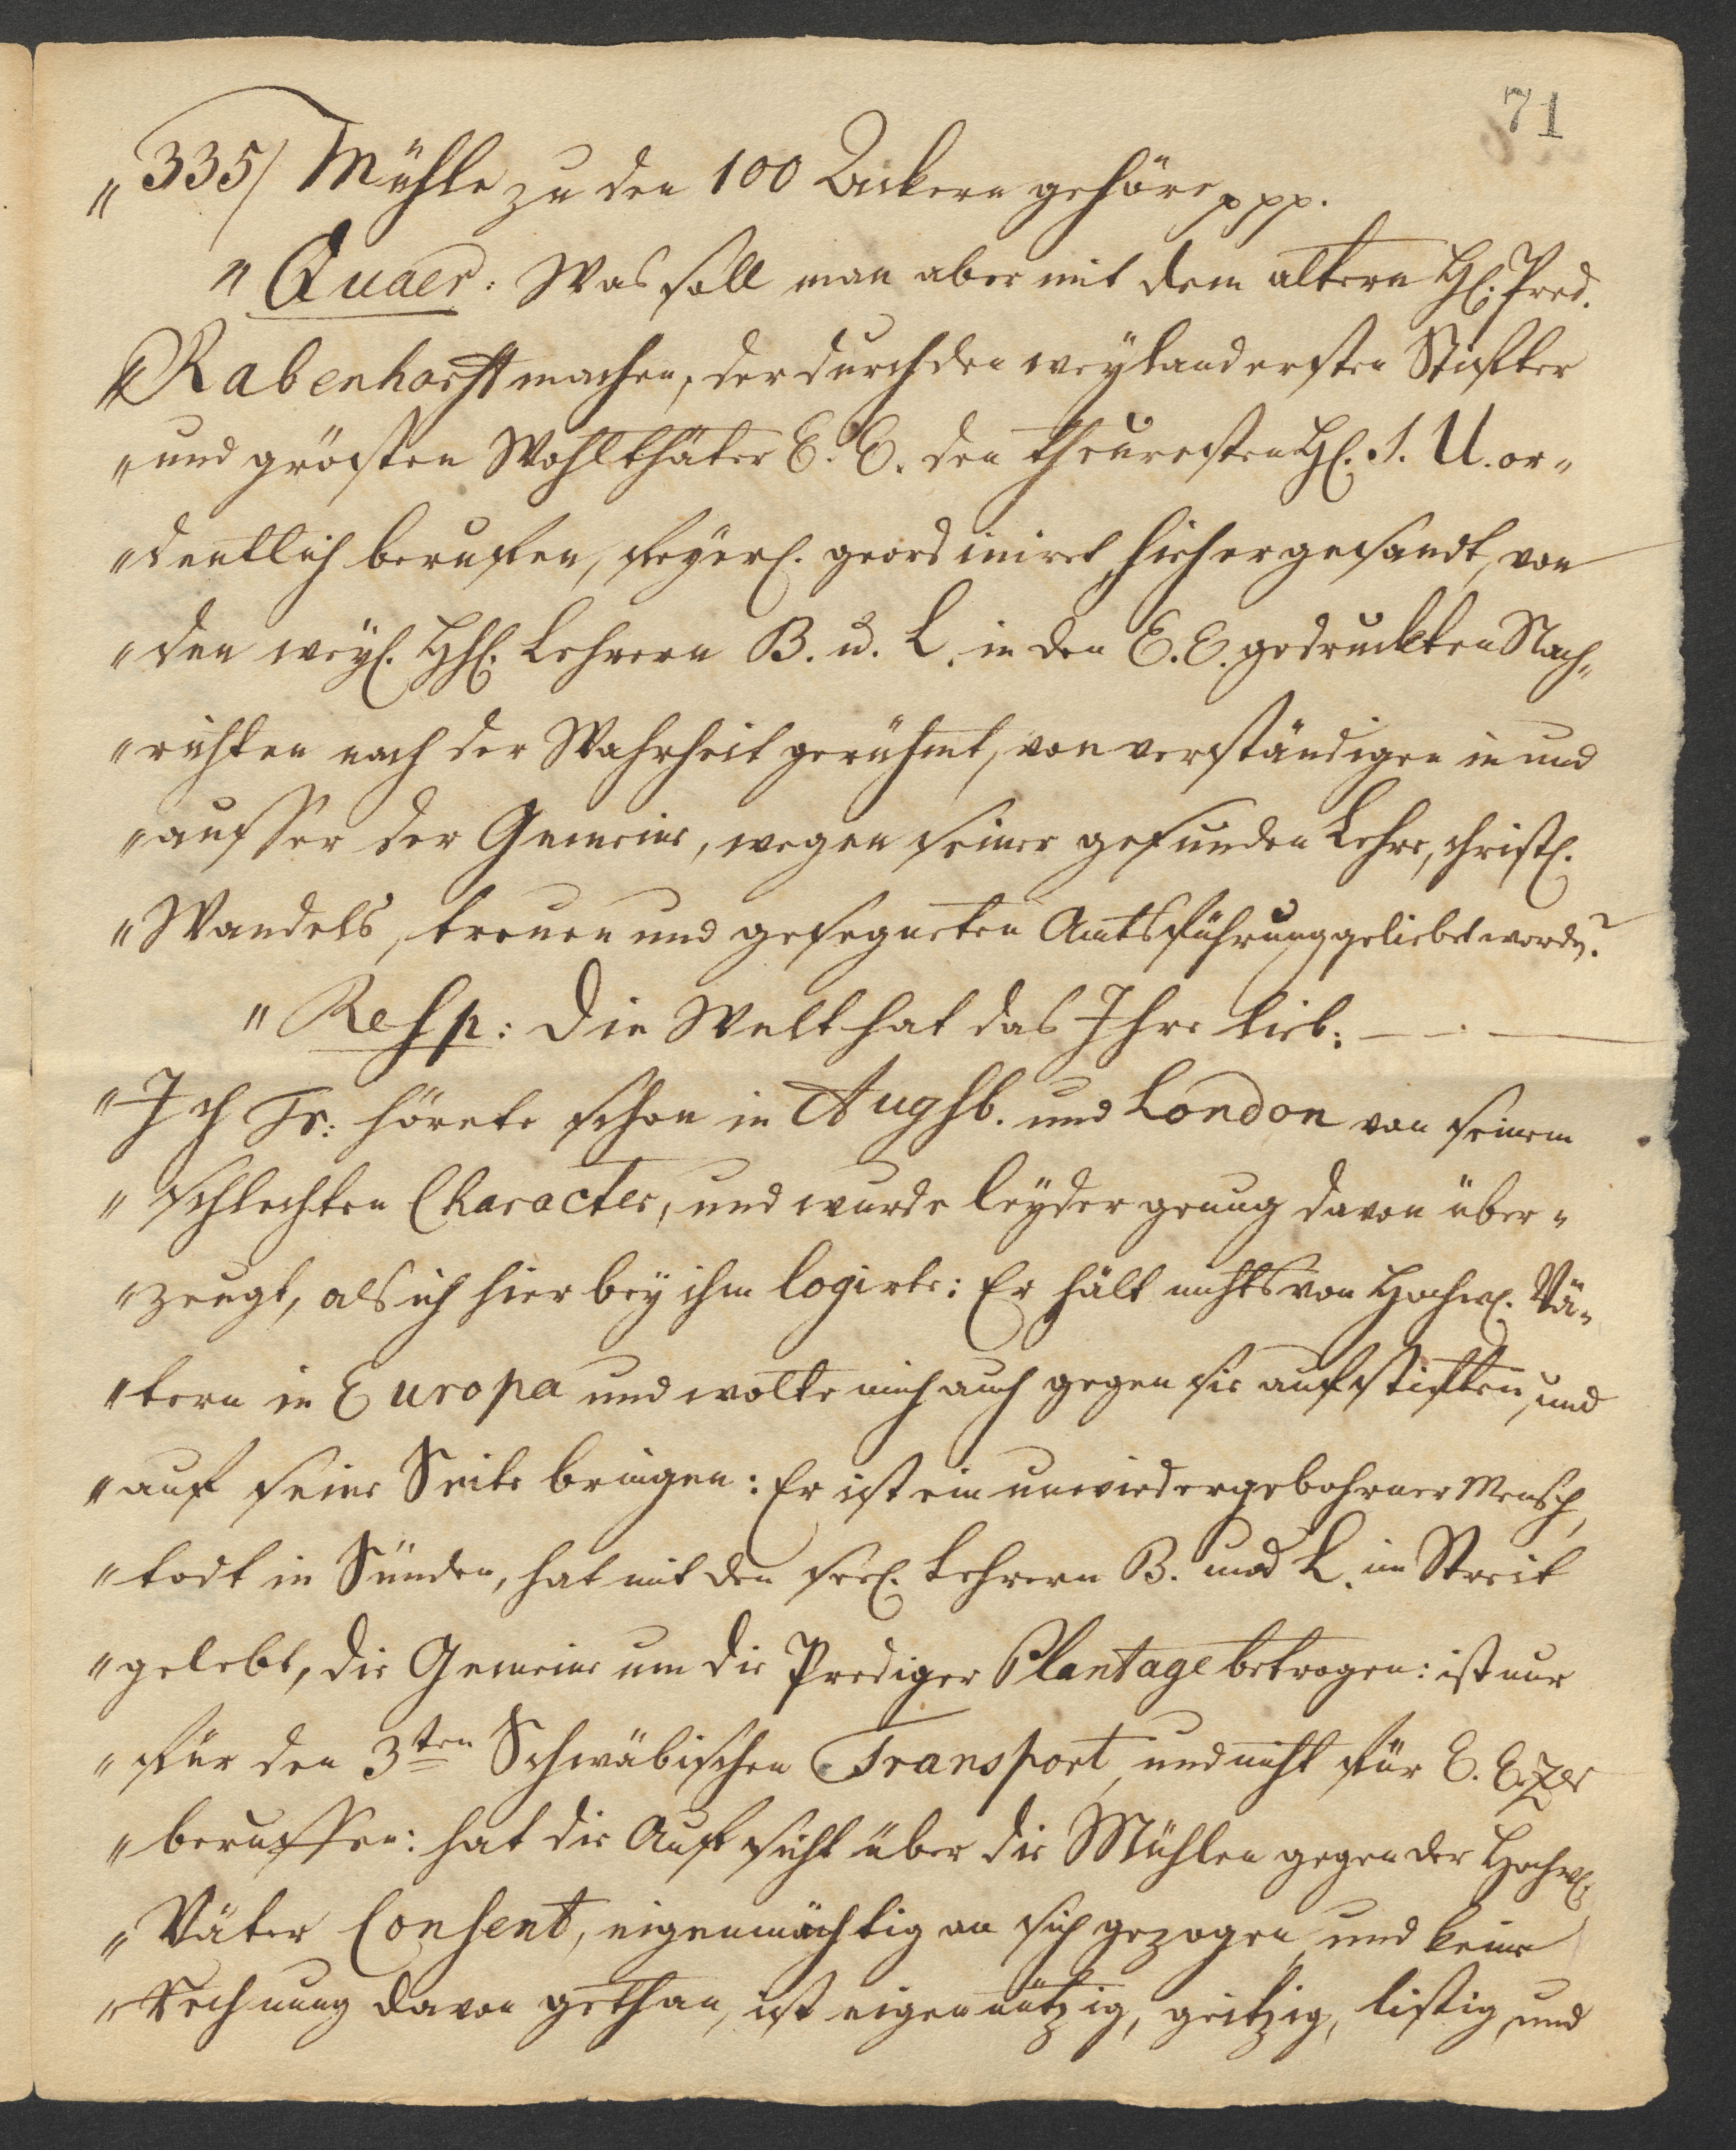 71
„335/ Mühle zu den 100 Ackern gehöre ppp.
„ Quaer: Was soll man aber mit dem altern H[. Pred.
„Rabenhorst machen, der durch den weyland ersten Stifter
„und grösten Wohlthäter E. E. den theuresten H[. S. U. or„
„dentlich beruffen, feyerl. geordiniret, hieher gesandt, von
„den weyl. HH[. Lehrern B. u. L. in den E. E. gedruckten Nach„
„richten nach der Wahrheit gerühmt, von verständigen in und
„ausser der Gemeine, wegen seiner gesunden Lehre, christl.
„Wandels, treuen und gesegneten Amtsführung geliebet worden?
„ Resp: die Welt hat das Ihre lieb: — · —
„Ich Tr: hörete schon in Augsb. und London von seinem
„schlechten Character, und wurde leyder genug davon über„
„zeugt, als ich hier bey ihm logirte: Er hält nichts von Hochw. Vä„
„tern in Europa und wolte mich auch gegen sie aufstifften, und
„auf seine Seite bringen: Er ist ein unwiedergebohrner Mensch,
„todt in Sünden, hat mit den seel. Lehrern B. und L. im Streit
„gelebt, die Gemeine um die Prediger Plantage betrogen: ist nur
„für den 3ten Schwäbischen Transport, und nicht für E. Ezer
„beruffen: hat die Aufsicht über die Mühlen gegen der Hochw.
„Väter Consent, eigenmächtig an sich gezogen und keine
„Rechnung davon gethan, ist eigennützig, geitzig, listig, und